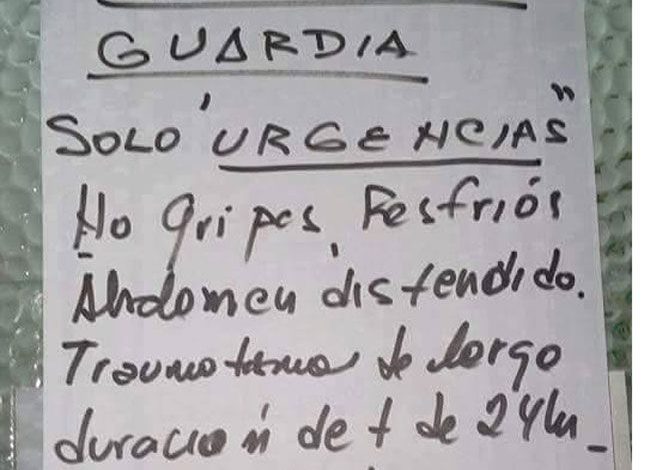 GUARDIA
SOLO 'URGENCIAS"
No gripes, Resfriós
Abdomen distendido.
Traumatismo de largo
duración de + de 24hs_